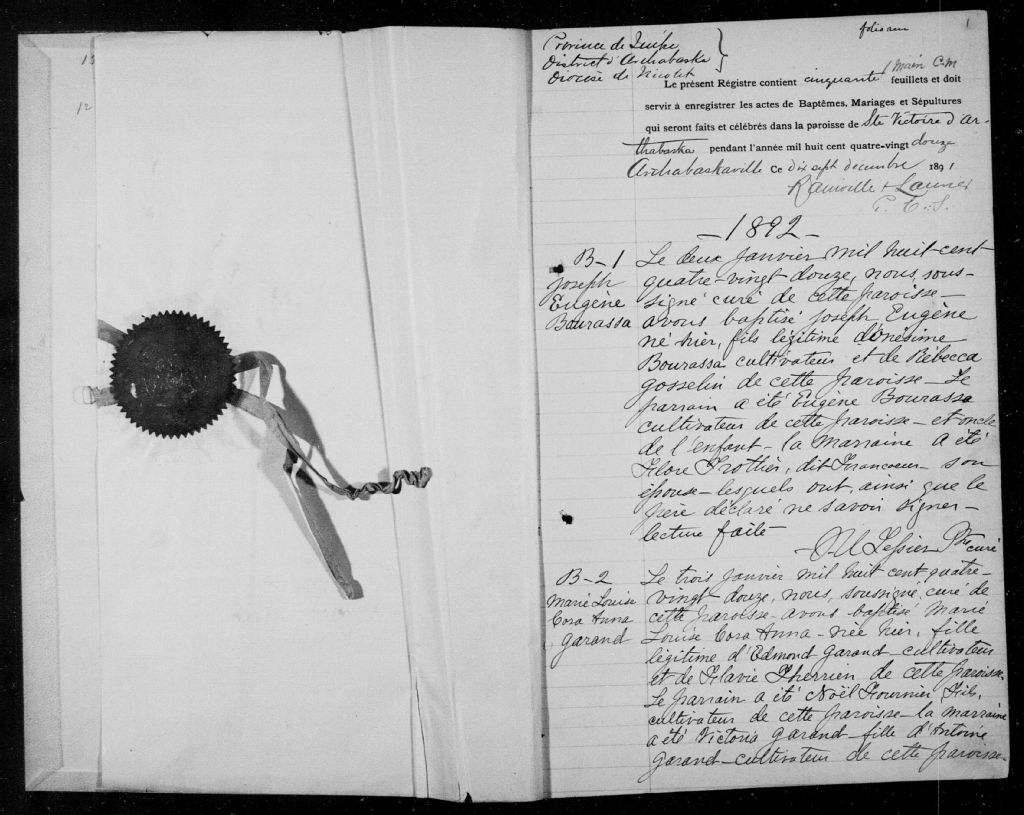 15
12
1
folio un
Province de Québec
District d'Arthabaska
Diocèse de Nicolet
1 Main C.M
Le présent Régistre contient cinquante feuillets et doit
servir à enregistrer les actes de Baptêmes, Mariages et Sépultures
qui seront faits et célébrés dans la paroisse de Ste Victoire d'Ar-
thabaska pendant l'année mil huit cent quatre-vingt douze
Arthabaskaville Ce dix sept decembre 1891
Rainville & Laurier
P. C. S.
–1892–
B–1
Joseph
Eugène
Bourassa
Le deux janvier mil huit-cent
quatre-vingt douze, nous, sous-
signé curé de cette paroisse–
avons baptisé Joseph Eugène
né hier, fils légitime d'Onésime
Bourassa cultivateur et de Rébecca
Gosselin de cette paroisse– Le
parrain a été Eugène Bourassa
cultivateur de cette paroisse– et oncle
de l'enfant– la marraine a été
Flore Trottier, dit Francoeur– son
épouse– lesquels ont, ainsi que le
père déclaré ne savoir signer–
lecture faite–
Tessier Ptre curé
B–2
Marie Louise
Cora Anna
Garand
Le trois janvier mil huit cent quatre-
vingt-douze, nous, soussigné, curé de
cette paroisse– avons baptisé Marie
Louise Cora Anna– née hier, fille
légitime d'Edmond Garand cultivateur
et de Flavie Therrien de cette paroisse.
Le parrain a été Noël Fournier Fils,
cultivateur de cette paroisse– la marraine
a été Victoria Garand– fille d'Antoine
Garand– cultivateur de cette paroisse–